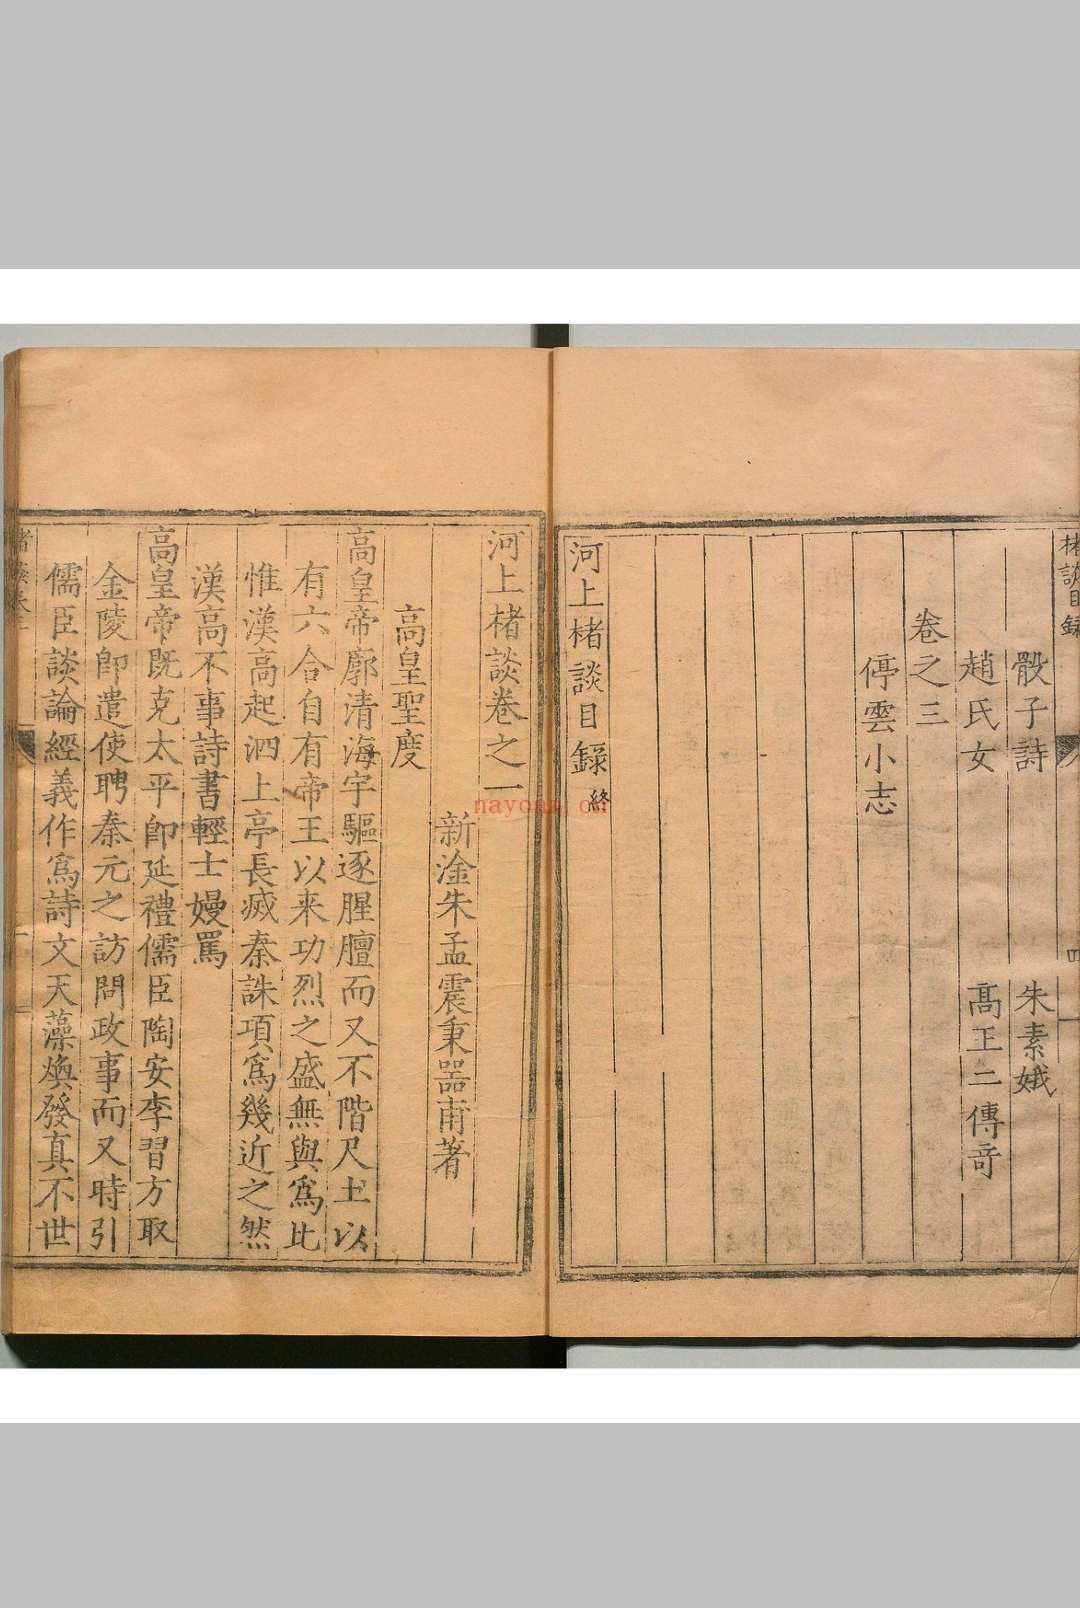 楮談目錄
四
骰子詩 朱素娥
趙氏女 高王二傳奇
卷之三
停雲小志
河上楮談目錄 終
河上楮談卷之一
新淦朱孟震秉器甫著
高皇聖度
高皇帝廓清海宇驅逐腥膻而又不階尺土以
有六合自有帝王以来功烈之盛無與爲比
惟漢高起泗上亭長滅秦誅項爲幾近之然
漢高不事詩書輕士嫚罵
高皇帝既克太平卽延禮儒臣陶安李習方取
金陵卽遣使聘秦元之訪問政事而又時引
儒臣談論經義作爲詩文天藻煥發真不世
nayona.cn